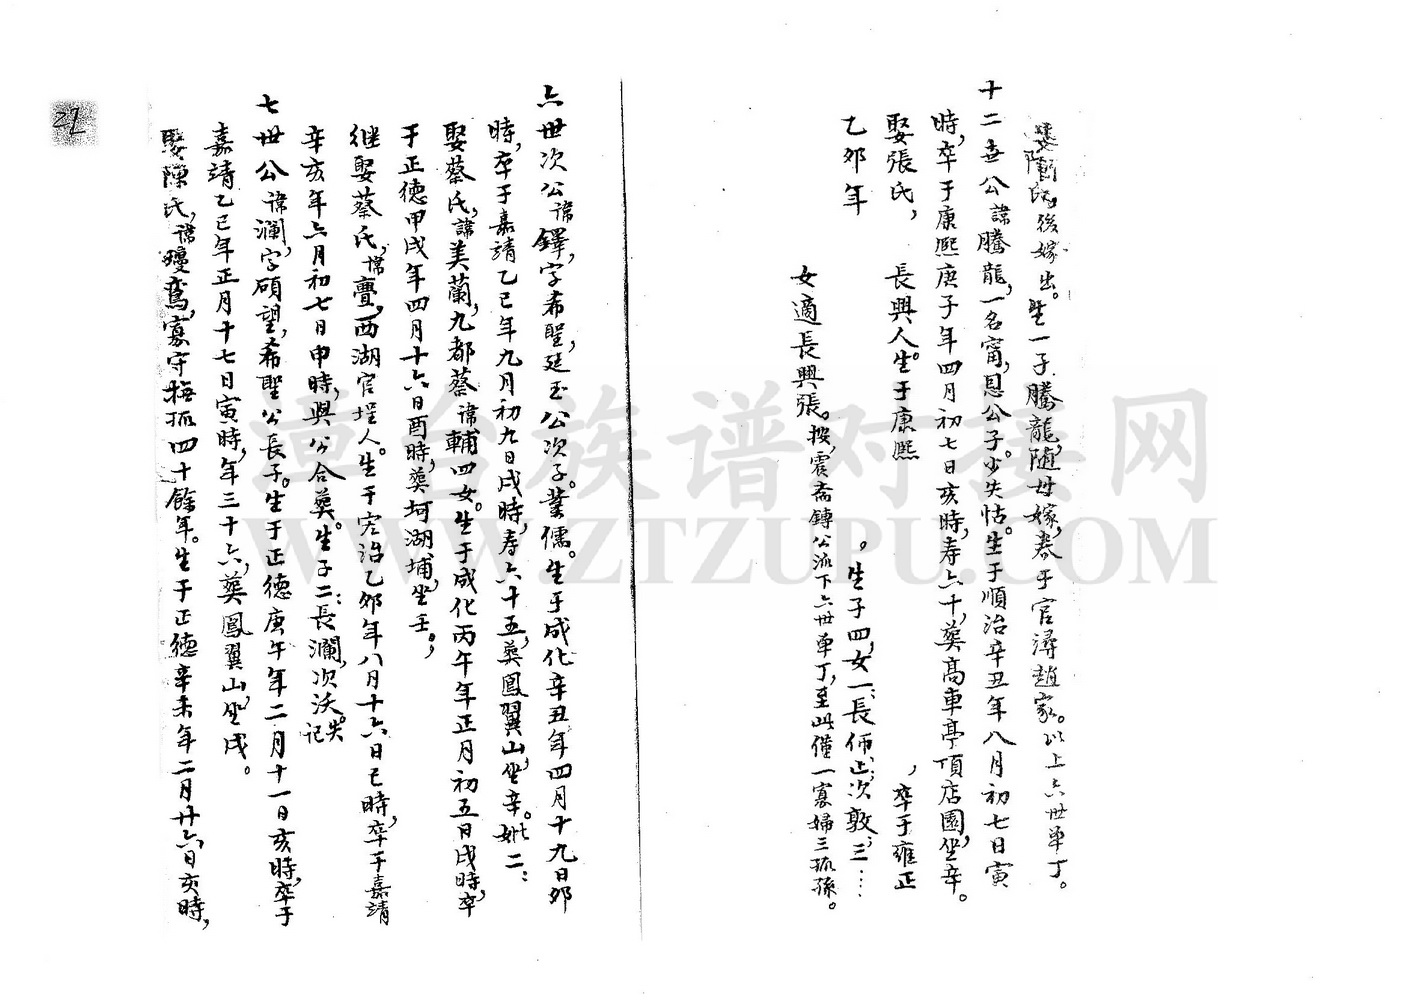 陳氏，後嫁出。生一子騰龍，随母嫁，養于官潯趙家。以上六世单丁。
十二世公諱騰龍，一名甯，恩公子。少失怙。生于順治辛丑年八月初七日寅
時，卒于康熙庚子年四月初七日亥時，寿六十，葬高車亭頂店園，坐辛。
娶張氏，　長興人。生于康熙　　，卒于雍正
乙夘年　　。生子四，女一：長師止；次敦；三……
女適長興張。按，震斋鏄公派下六世单丁，至此僅一寡婦三孤孫。
六世次公諱鐸，字希聖，廷玉公次子。業儒。生于成化辛丑年四月十九日夘
時，卒于嘉靖乙巳年九月初九日戌時，寿六十五，葬鳳翼山，坐辛。妣二：
娶蔡氏，諱美蘭，九都蔡諱輔四女。生于成化丙午年正月初五日戌時，卒
于正德甲戌年四月十六日酉時，葬坷湖埔，坐壬。；
继娶蔡氏，諱亹，西湖官埕人。生于宏治乙夘年八月十六日巳時，卒于嘉靖
辛亥年六月初七日申時，與公合葬。生子二：長瀾，次沃。失记
七世公諱瀾，字碩望，希聖公長子。生于正德庚午年二月十一日亥時，卒于
嘉靖乙巳年正月十七日寅時，年三十六，葬鳳翼山，坐戌。
娶陳氏，諱鸞，寡守撫孤四十餘年。生于正德辛未年二月廿六日亥時，
22
漳台族谱对接网
WWW.ZTZUPU.COM